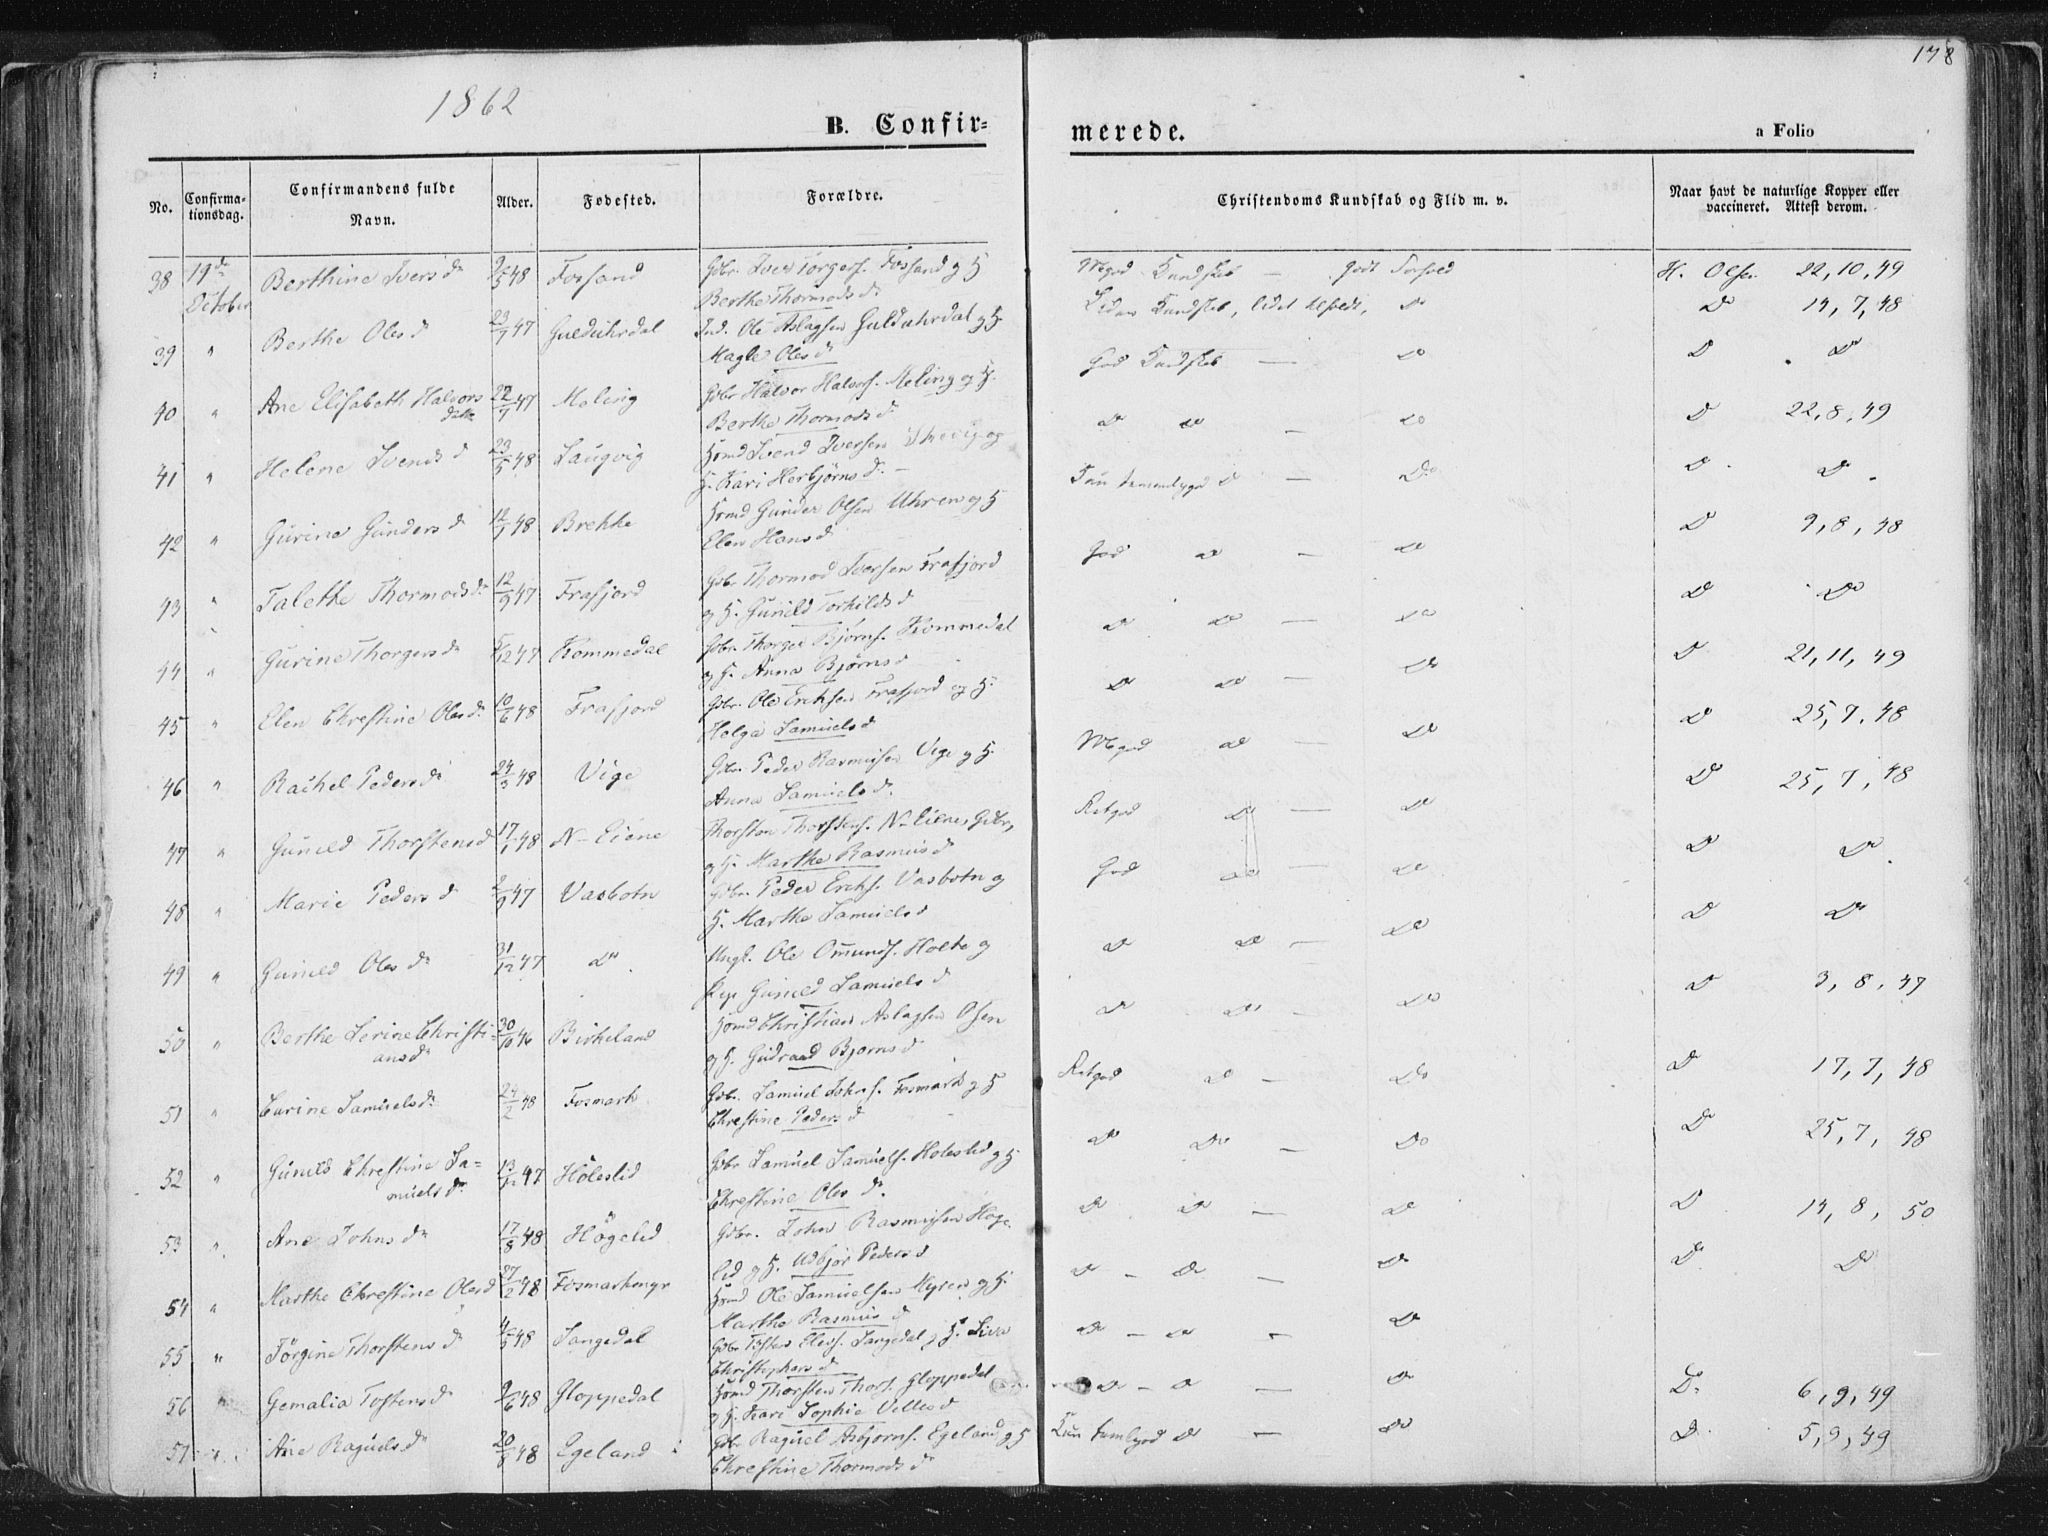 178
1862
B. Confir=
merede.
a Folio
No.
Confirma-
tionsdag.
Confirmandens fulde
Navn.
Alder.
Fødested.
Forældre.
Christendoms Kundskab og Flid m. v.
Naar havt de naturlige Kopper eller
vaccineret. Attest derom.
38 19de October Berthine Ivers d 9/5 48 Fossand Gbr. Iver Torgers. Fossand og H
Berthe Thormods d. Mgod Kundskab — godt Forhold H. Olsen 22, 10, 49
39 " Berthe Oles d 23/7 47 Gulduhrdal Ind. Ole Aslagsen Gulduhrdal og H.
Magle Oles d Kundskab, lidet D 14, 7, 48
40 " Ane Elisabeth Halvors
datter 22/7 47 Meling Gbr Halvor Halvors. Meling og H.
Berthe Thormods d. God Kundskab — do D do
41 " Helene Svends d 23/5 48 Laugvig Hsmd Svend Iversen og
H. Kari Herbjørns d. — D do — do D 22, 8, 49
42 " Gurine Gunders d 12/1 48 Brekke Hsmd Gunder Olsen Uhren og H
Elen Hans d do — Do D. Do
43 " Talette Thormods d 12/9 47 Frafjord Gbr Thormod Iversen Frafjord
og H. Gunild Torkilds d God do — do D 9, 8, 48
44 " Gurine Thorgers d 5/12 47 Kommedal Gbr. Thorger Bjørns. Kommedal
og H. Anna Bjørns d D do — do D Do
45 " Elen Chrestine Oles d. 10/6 48 Frafjord Gbr. Ole Eriksen Frafjord og H.
Helga Samuels d D do — do D 21, 11, 49
46 " Rachel Peders d 24/3 48 Vige Gbr. Peder Rasmusen Vige og H.
Anna Samuels d. Mgod do — do D 25, 7, 48
47 " Gunild Thorstens d 17/1 48 N-Eiene Thorsten Thorstens. N-Eiene, Gbr,
og H. Marthe Rasmus d Retgod D — do D 25, 7, 48
48 " Marie Peders d 2/9 47 Vasbotn Gbr. Peder Eriks. Vasbotn og
H. Marthe Samuels d God do — do D Do
49 " Gunild Oles d 31/12 47 do Ungk. Ole Omunds. Holte og
Pige Gunild Samuels d D do — do D Do
50 " Berthe Serine Christi-
ans d 30/10 46 Birkeland Hsmd Christian Aslagsen Osen
og H. Gudraad Bjørns d D do — do D 3, 8, 47
51 " Curine Samuels d 24/2 48 Fosmark Gbr. Samuel Johns. Fosmark og H
Chrestine Peders d Retgod D — Do D 17, 7, 48
52 " Gunild Chrestine Sa=
muels d 13/12 47 Høleslid Gbr. Samuel Samuels. Holeslid og H
Chrestine Oles d. D Do — Do D 25, 7, 48
53 " Ane Johns d 17/8 48 Högelid Gbr. John Rasmusen Høge
lid og H. Udbjør Peders d D D — D D 14, 8, 50
54 " Marthe Chrestine Oles d 27/2 48 Fosmarkmyr Hsmd Ole Samuelsen Myren og H.
Marthe Rasmus d D — D — Do D. D
55 " Jörgine Thorstens d 4/5 48 Sangedal Gbr Tosten Elevs. Sangedal og H. Siva
Christophers d D — D — Do
56 " Gemalia Tostens d 9/6 48 Gloppedal Hsmd Thorsten Thors. Gloppedal
og H. Kari Sophie Velles d D — D — D D. 6, 9, 49
57 " Ane Raguels d 20/8 48 Egeland Gbr Raguel Asbjørns. Egeland og H
Chrestine Thormods d Kun D — Do D. 5, 9, 49